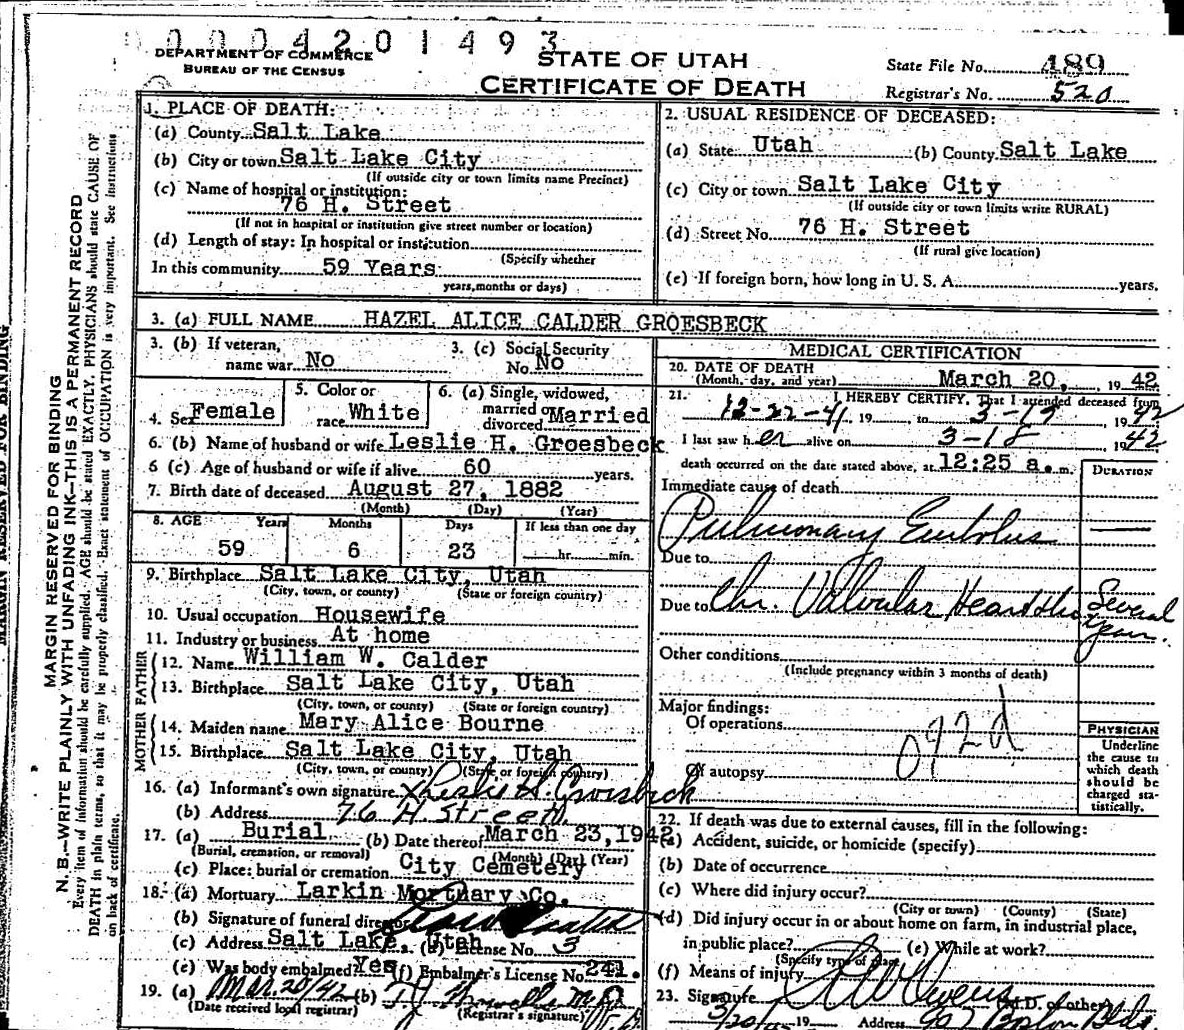 0004201493
DEPARTMENT OF COMMERCE
BUREAU OF THE CENSUS
STATE OF UTAH
CERTIFICATE OF DEATH
State File No. 489
Registrar's No. 520
MARGIN RESERVED FOR BINDING
MARGIN RESERVED FOR BINDING
N. B.—WRITE PLAINLY WITH UNFADING INK—THIS IS A PERMANENT RECORD
Every item of information should be carefully supplied. AGE should be stated EXACTLY. PHYSICIANS should state CAUSE OF
DEATH in plain terms, so that it may be properly classified. Exact statement of OCCUPATION is very important. See instructions
on back of certificate.
1. PLACE OF DEATH:
(a) County Salt Lake
(b) City or town Salt Lake City
(If outside city or town limits name Precinct)
(c) Name of hospital or institution:
76 H. Street
(If not in hospital or institution give street number or location)
(d) Length of stay: In hospital or institution
(Specify whether
In this community 59 Years
years, months or days)
2. USUAL RESIDENCE OF DECEASED:
(a) State Utah (b) County Salt Lake
(c) City or town Salt Lake City
(If outside city or town limits write RURAL)
(d) Street No. 76 H. Street
(If rural give location)
(e) If foreign born, how long in U. S. A. years.
3. (a) FULL NAME HAZEL ALICE CALDER GROESBECK
3. (b) If veteran,
name war No
3. (c) Social Security
No. No
4. Sex Female
5. Color or
race White
6. (a) Single, widowed,
married or
divorced Married
6. (b) Name of husband or wife Leslie H. Groesbeck
6 (c) Age of husband or wife if alive 60 years.
7. Birth date of deceased August 27, 1882
(Month) (Day) (Year)
8. AGE Years Months Days If less than one day
59 6 23 hr. min.
9. Birthplace Salt Lake City, Utah
(City, town, or county) (State or foreign country)
10. Usual occupation Housewife
11. Industry or business At home
FATHER
12. Name William W. Calder
13. Birthplace Salt Lake City, Utah
(City, town, or county) (State or foreign country)
MOTHER
14. Maiden name Mary Alice Bourne
15. Birthplace Salt Lake City, Utah
(City, town, or county) (State or foreign country)
16. (a) Informant's own signature x Leslie H. Groesbeck
(b) Address 76 H. Street
17. (a) Burial (b) Date thereof March 23, 1942
(Burial, cremation, or removal) (Month) (Day) (Year)
(c) Place: burial or cremation City Cemetery
18. (a) Mortuary Larkin Mortuary Co.
(b) Signature of funeral director
(c) Address Salt Lake, Utah (d) License No. 3
(e) Was body embalmed Yes (f) Embalmer's License No. 241.
19. (a) Mar. 20/42 (b)
(Date received local registrar) (Registrar's signature)
MEDICAL CERTIFICATION
20. DATE OF DEATH
(Month, day, and year) March 20, 1942
21. I HEREBY CERTIFY, That I attended deceased from
12-22-41, 19 , to 3-19 1942
I last saw her alive on 3-18 1942
death occurred on the date stated above, at 12:25 a. m.
DURATION
Immediate cause of death
Pulmonary Embolus
Due to
Due to Chr. Valvular Heart Several
Other conditions
(Include pregnancy within 3 months of death)
Major findings:
Of operations
092d
Of autopsy
PHYSICIAN
Underline
the cause to
which death
should be
charged sta-
tistically.
22. If death was due to external causes, fill in the following:
(a) Accident, suicide, or homicide (specify)
(b) Date of occurrence
(c) Where did injury occur?
(City or town) (County) (State)
(d) Did injury occur in or about home on farm, in industrial place,
in public place? (e) While at work?
(Specify type of place)
(f) Means of injury
23. Signature Owens M.D. or other
3/20/42 19 Address